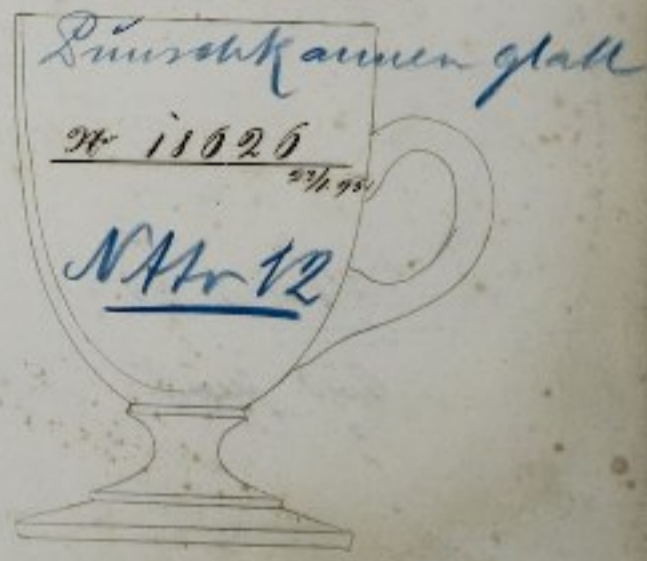 Punschkannen glatt
Nr 18626
22/1.95.
NAtr 12